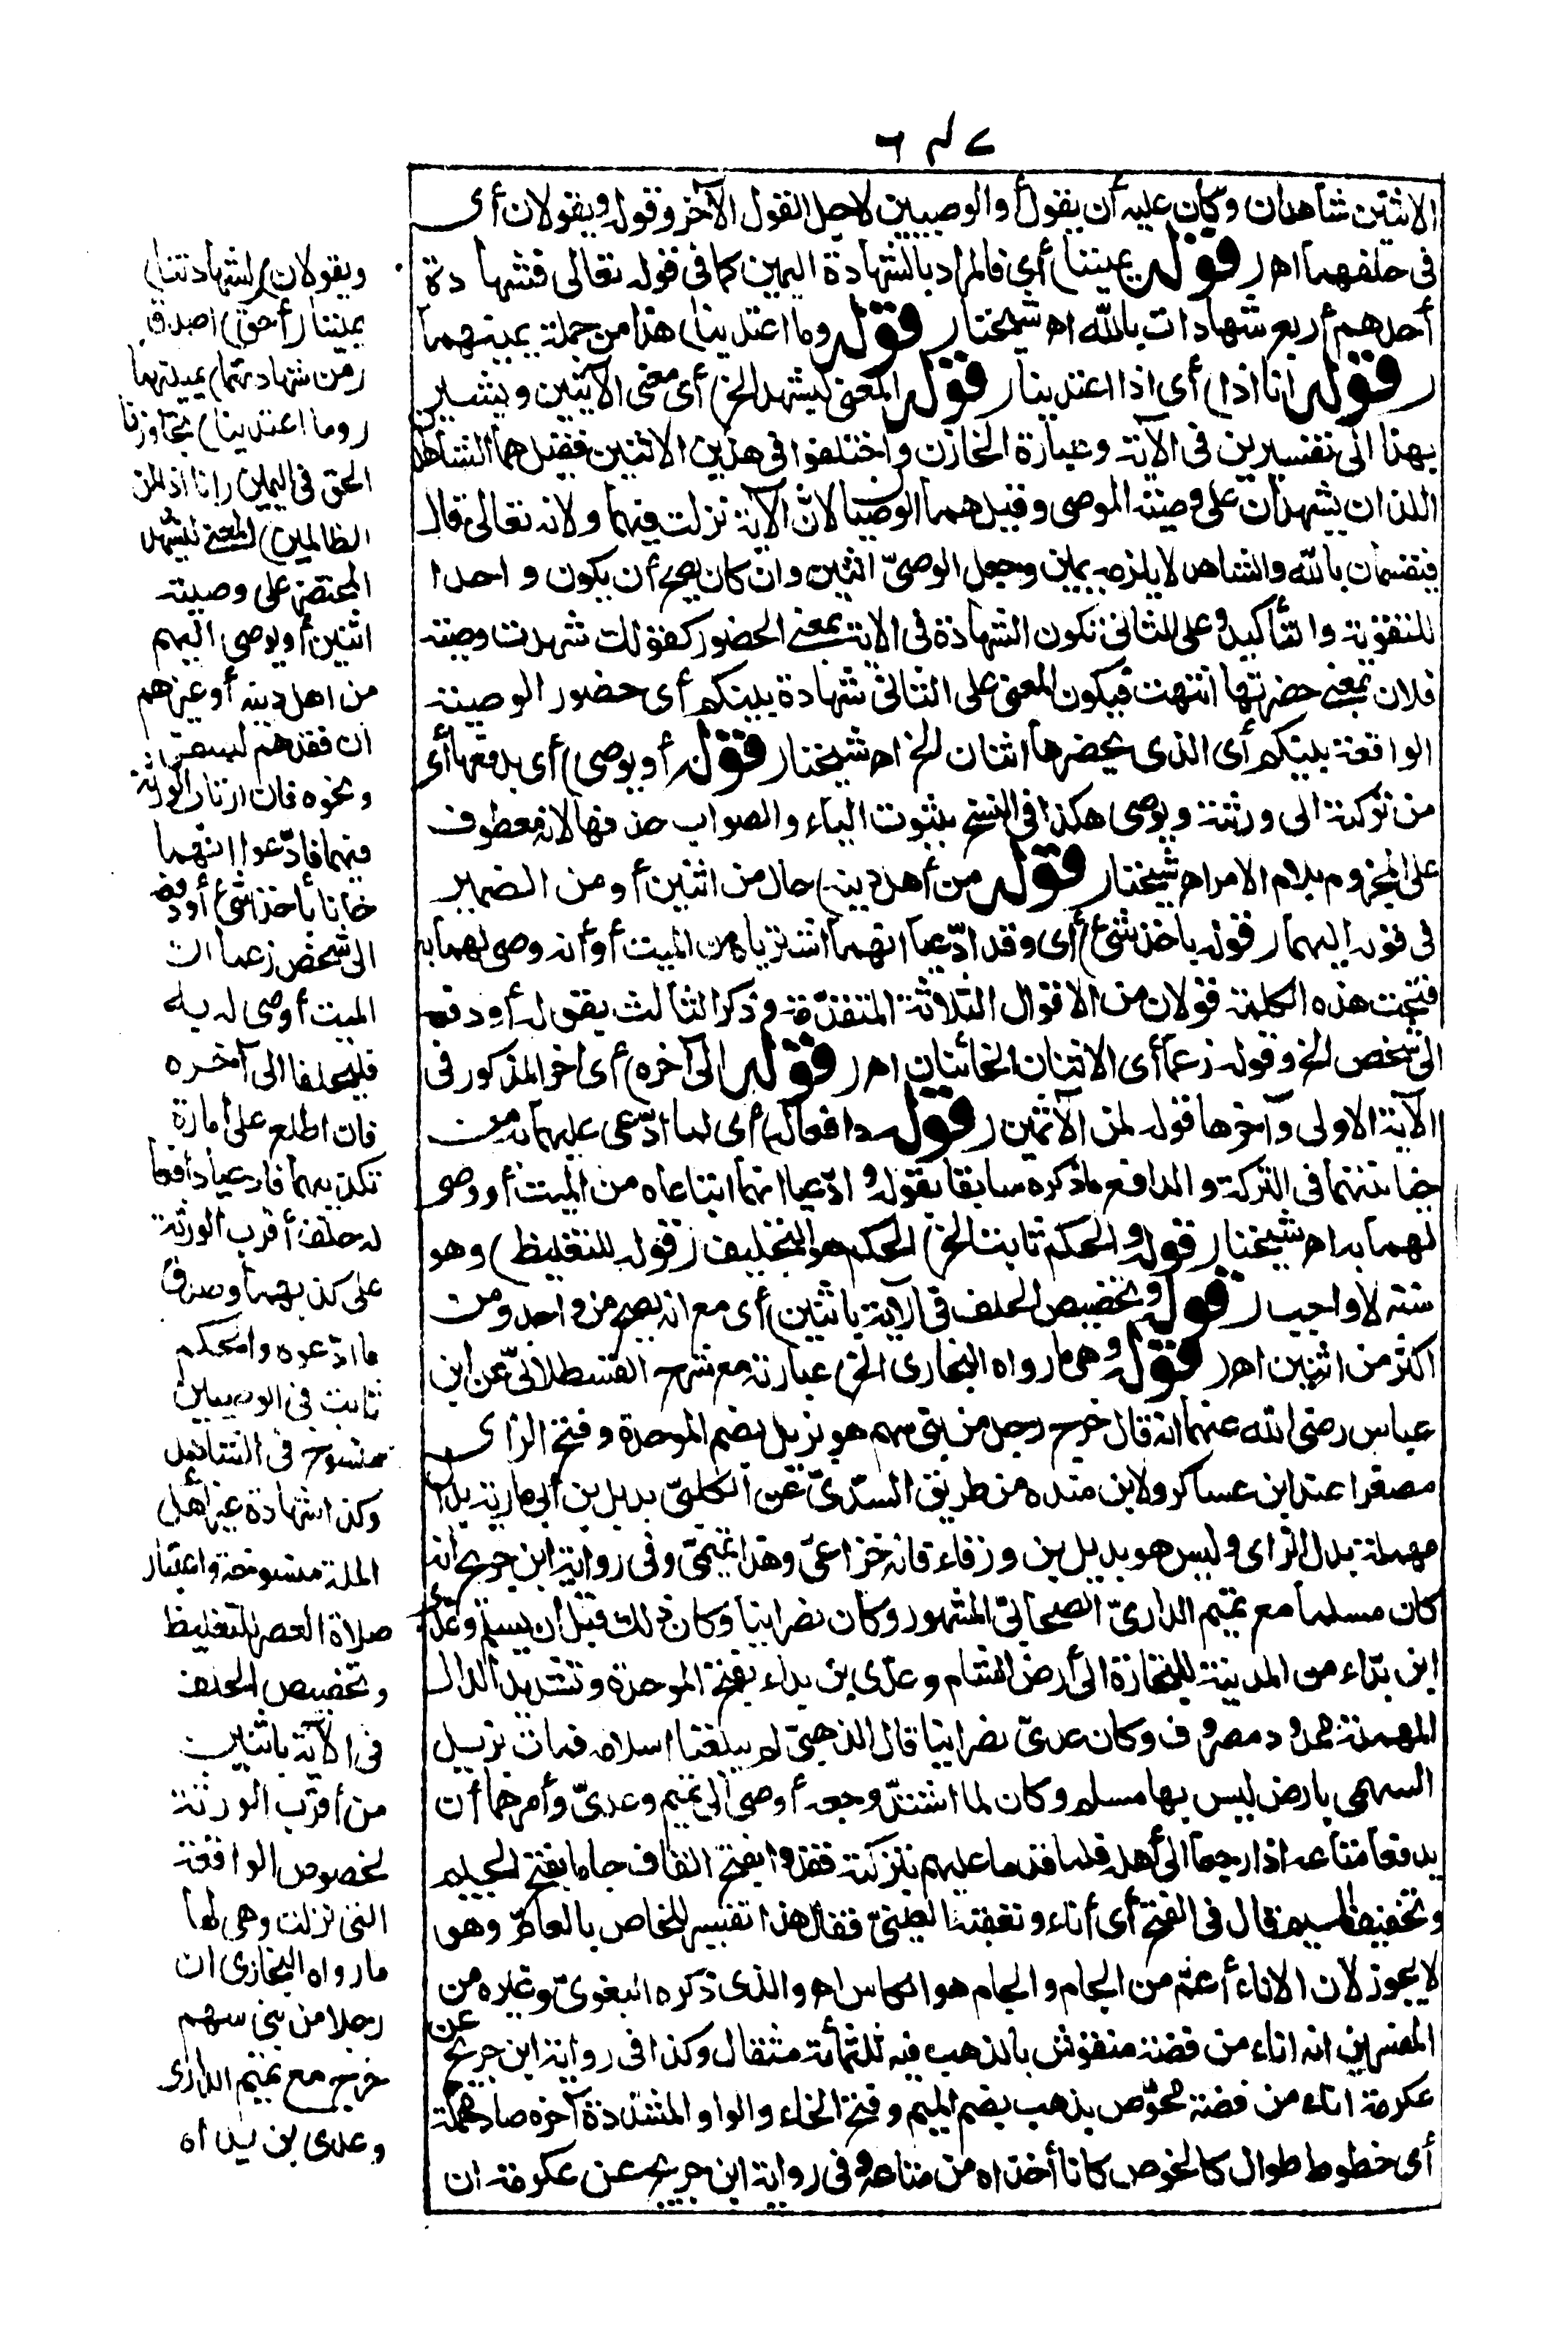 ٦٤٧
الاثنين شاهدان وكان عليه أن يقول أو الوصيين لاجل القول الآخر وقوله ويقولان أى
فى حلفهما اهـ (قوله يميننا) أى فالمراد بالشهادة اليمين كما فى قوله تعالى فشهادة
أحدهم أربع شهادات بالله اهـ شيخنا (قوله وما اعتدينا) هذا من جملة يمينهما
(قوله انا اذا) أى اذا اعتدينا (قوله المعنى ليشهد الخ) أى معنى الآيتين ويشير
بهذا الى تفسيرين فى الآية وعبارة الخازن واختلفوا فى هذين الاثنين فقيل هما الشاهدان
اللذان يشهدان على وصية الموصى وقيل هما الوصيان لانّ الآية نزلت فيهما ولانه تعالى قال
فيقسمان بالله والشاهد لا يلزمه يمين وجعل الوصىّ اثنين وان كان يصح أن يكون واحدا
للتقوية والتأكيد وعلى الثانى تكون الشهادة فى الآية بمعنى الحضور كقولك شهدت وصية
فلان بمعنى حضرتها انتهت فيكون المعنى على الثانى شهادة بينكم أى حضور الوصية
الواقعة بينكم أى الذى يحضرها اثنان الخ اهـ شيخنا (قوله أو يوصى) أى يدفعها أى
من تركته الى ورثته ويوصى هكذا فى النسخ بثبوت الياء والصواب حذفها لانه معطوف
على المجزوم بلام الامر اهـ شيخنا (قوله من أهل دينه) حال من اثنين أو من الضمير
فى قوله اليهما (قوله بأخذ شئ) أى وقد ادّعيا انهما اشترياه من الميت أو أنه وصى لهما به
فتحت هذه الكلمة قولان من الاقوال الثلاثة المتقدّمة وذكر الثالث بقوله أو دفعه
الى شخص الخ وقوله زعما أى الاثنان الخائنان اهـ (قوله الى آخره) أى آخر المذكور فى
الآية الاولى وآخرها قوله لمن الآثمين (قوله دافعا له) أى لما ادّعى عليهما به من
خيانتهما فى التركة والدافع ما ذكره سابقا بقوله وادّعيا انهما ابتاعاه من الميت أو وصى
لهما به اهـ شيخنا (قوله والحكم ثابت الخ) الحكم هو التحليف (قوله للتغليظ) وهو
سنة لا واجب (قوله وتخصيص الحلف فى الآية باثنين) أى مع انه يصح من واحد ومن
اكثر من اثنين اهـ (قوله وهى ما رواه البخارى الخ) عبارته مع شرح القسطلانىّ عن ابن
عباس رضى الله عنهما انه قال خرج رجل من بنى سهم هو بزيل بضم الموحدة وفتح الزاى
مصغرا عند ابن عساكر ولابن منده من طريق السدّىّ عن الكلبىّ بديل بن أبى مارية بدال
مهملة بدل الزاى وليس هو بديل بن ورقاء فانه خزاعىّ وهذا تميمىّ وفى رواية ابن جريج انه
كان مسلما مع تميم الدارىّ الصحابىّ المشهور وكان نصرانيا وكان ذلك قبل أن يسلم وعدى
ابن بدّاء من المدينة للتجارة الى أرض الشام وعدى بن بداء بفتح الموحدة وتشديد الدال
المهملة ممدود مصروف وكان عدىّ نصرانيا قال الذهبىّ لم يبلغنا اسلامه فمات بزيل
السهمى بارض ليس بها مسلم وكان لما اشتدّ وجعه أوصى الى تميم وعدىّ وأمرهما أن
يدفعا متاعه اذا رجعا الى أهله فلما قدما عليهم بتركته فقدوا بفتح القاف جاما بفتح الجيم
وتخفيف الميم قال فى الفتح أى أناء وتعقبه العينىّ فقال هذا تفسير للخاص بالعامّ وهو
لا يجوز لان الاناء أعمّ من الجام والجام هو الكاس اهـ والذى ذكره البغوىّ وغيره من
المفسرين انه اناء من فضة منقوش بالذهب فيه ثلثمائة مثقال وكذا فى رواية ابن جريج عن
عكرمة اناء من فضة مخوّص بذهب بضم الميم وفتح الخاء والواو المشدّدة آخره صاد مهملة
أى خطوط طوال كالخوص كانا أخذاه من متاعه وفى رواية ابن جريج عن عكرمة ان
ويقولان (لشهادتنا)
يميننا (أحق) اصدق
(من شهادتهما) يمينهما
(وما اعتدينا) تجاوزنا
الحق فى اليمين (انا اذا لمن
الظالمين) المعنى ليشهد
المحتضر على وصيته
اثنين أو يوصى اليهم
من اهل دينه أو غيرهم
ان فقدهم لسفر
ونحوه فان ارتاب الورثة
فيهما فادّعوا انهما
خانا بأخذ شئ أو دفعه
الى شخص زعما ان
الميت أوصى له به
فليحلفا الى آخره
فان اطلع على امارة
تكذيبهما فادعيا دافعا
له حلف أقرب الورثة
على كذبهما وصدق
ما ادّعوه والحكم
ثابت فى الوصيين
منسوخ فى الشاهدين
وكذا شهادة غير أهل
الملة منسوخة واعتبار
صلاة العصر للتغليظ
وتخصيص الحلف
فى الآية باثنين
من أقرب الورثة
لخصوص الواقعة
التى نزلت وهى لها
ما رواه البخارى ان
رجلا من بنى سهم
خرج مع تميم الدارى
وعدى بن بداء